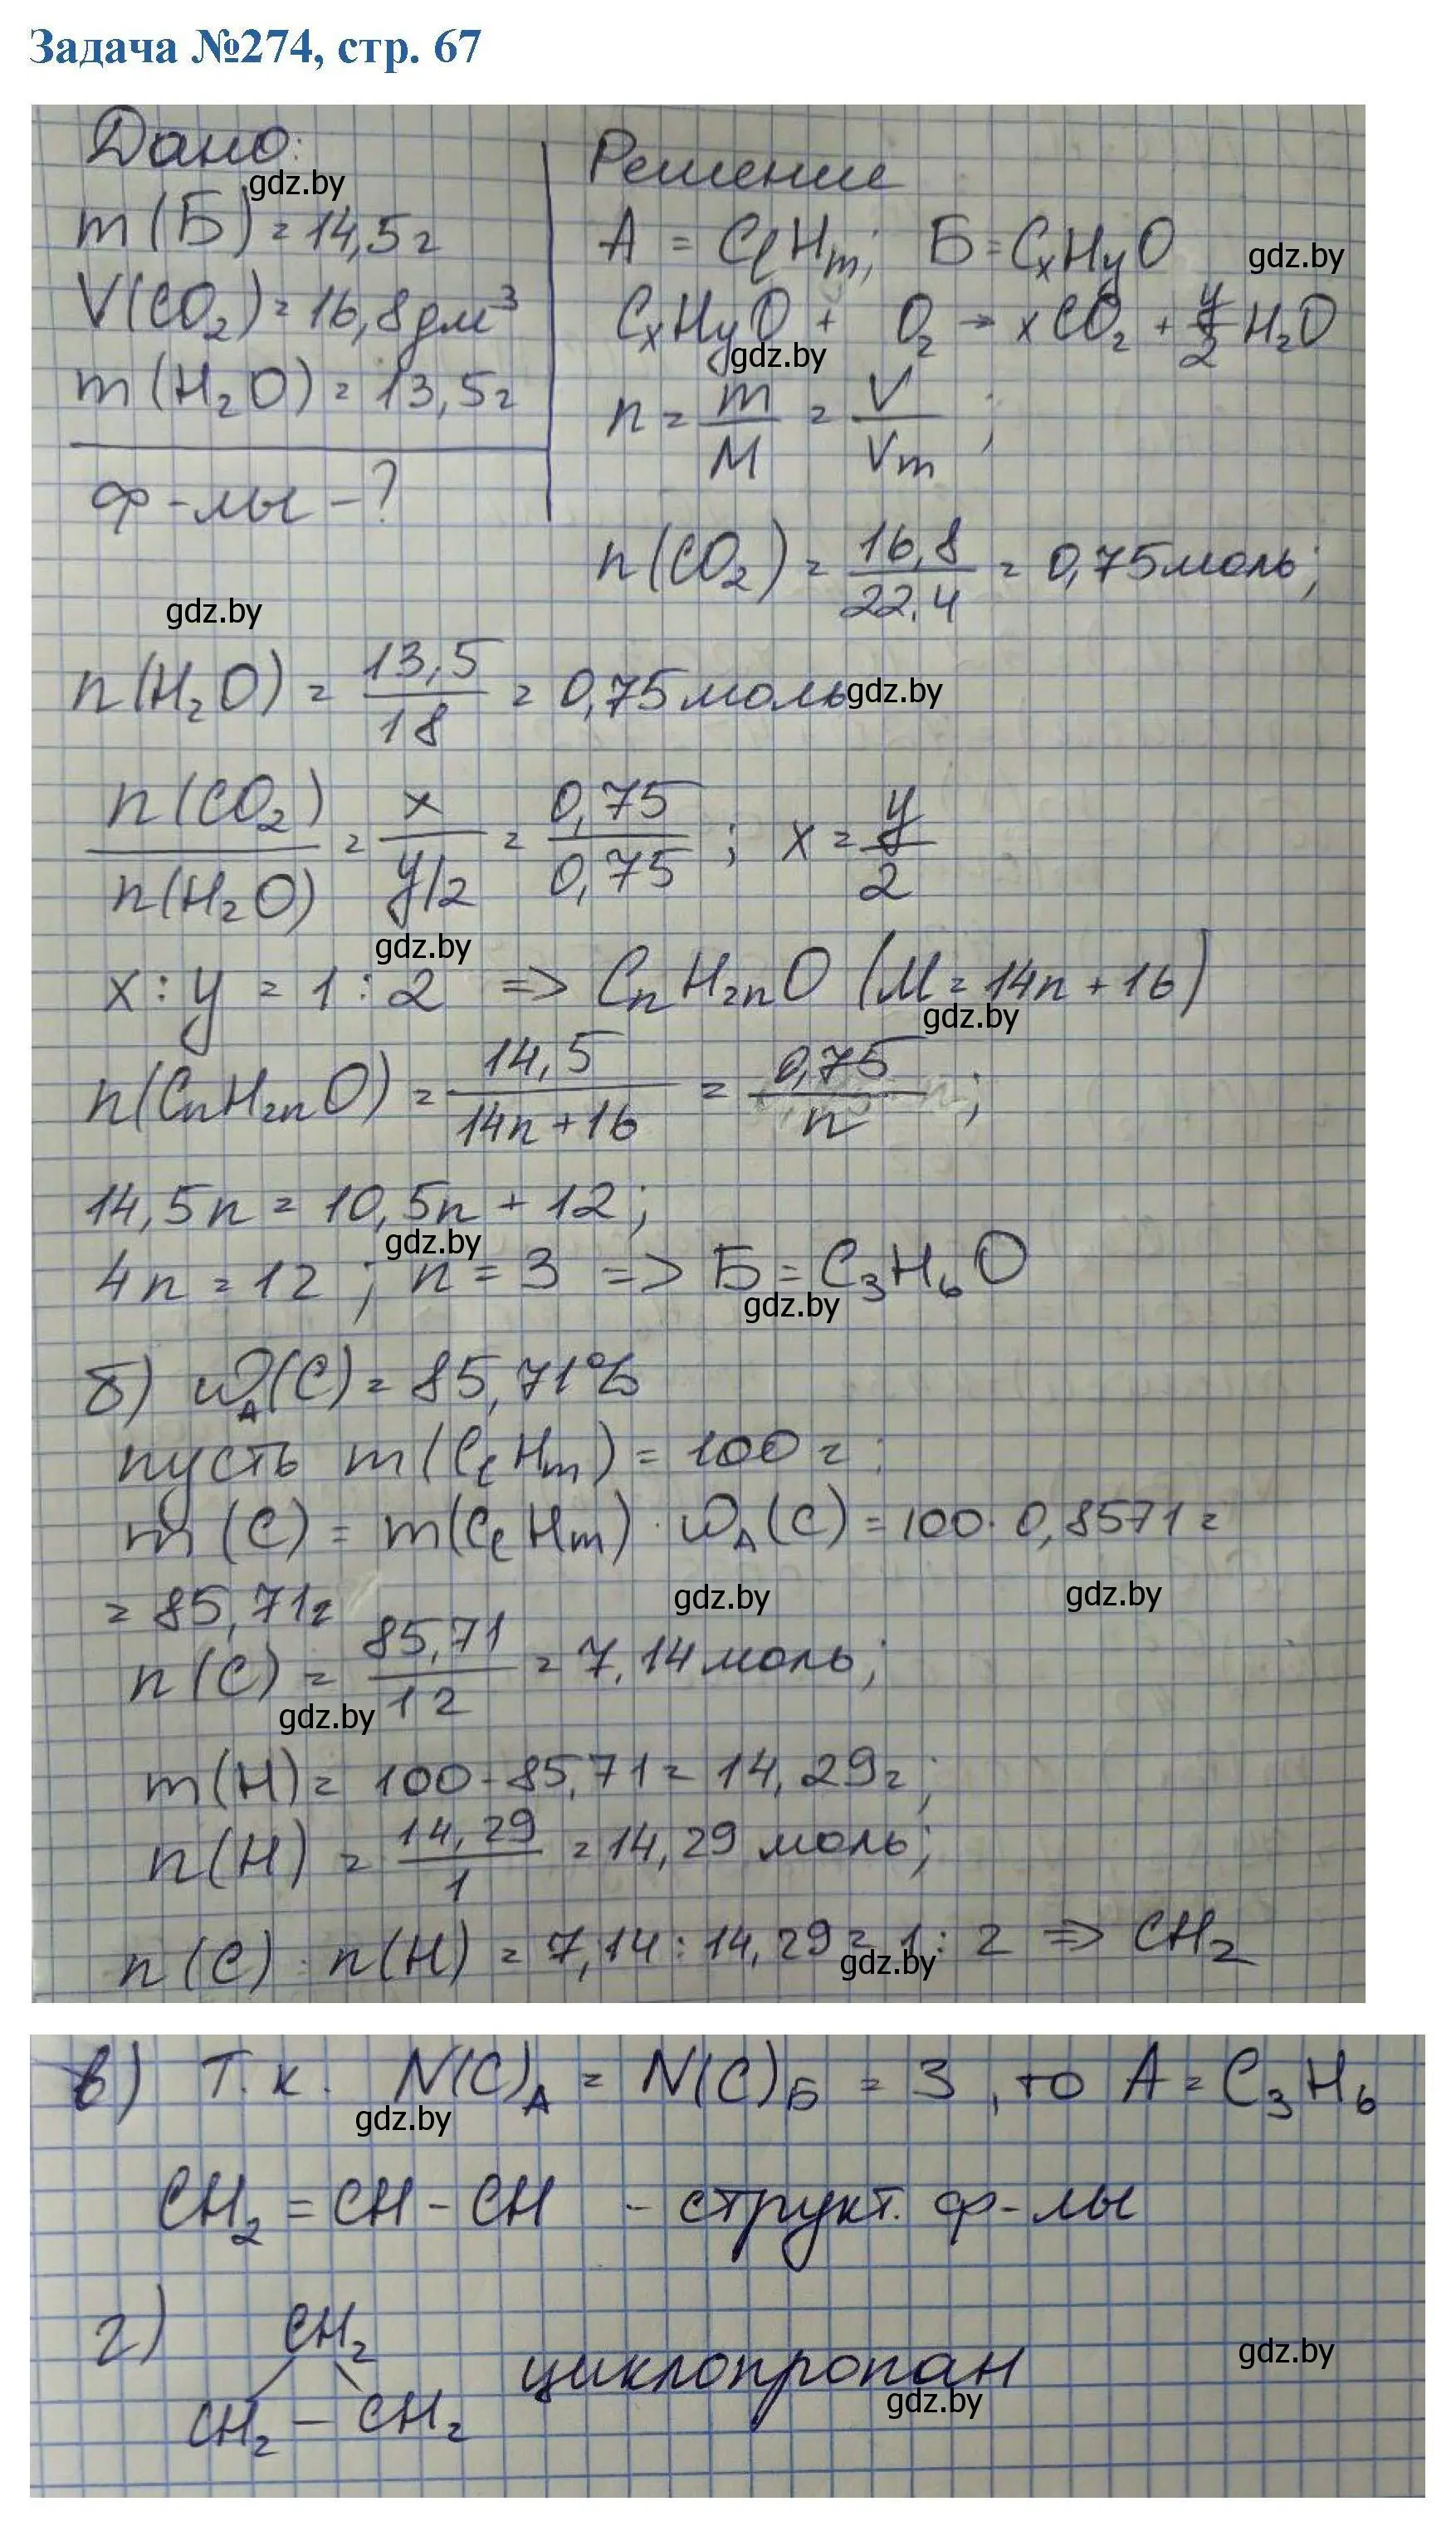 Задача №274, стр. 67
Дано:
gdz.by
m(Б) = 14,5г
V(CO₂) = 16,8дм³
m(H₂O) = 13,5г
ф-лы -?
Решение
A = CℓHm; Б = CxHyO
gdz.by
CxHyO + O₂ → xCO₂ + y/2 H₂O
gdz.by
n = m/M = V/Vm;
n(CO₂) = 16,8/22,4 = 0,75моль;
gdz.by
n(H₂O) = 13,5/18 = 0,75моль
gdz.by
n(CO₂)/n(H₂O) = x/y/2 = 0,75/0,75; x = y/2
gdz.by
x : y = 1 : 2 => CnH2nO (M = 14n + 16)
gdz.by
n(CnH2nO) = 14,5/14n+16 = 0,75/n;
14,5n = 10,5n + 12;
gdz.by
4n = 12; n = 3 => Б = C₃H₆O
gdz.by
б) ωA(C) = 85,71%
пусть m(CℓHm) = 100г;
m(C) = m(CℓHm) · ωA(C) = 100 · 0,8571 =
gdz.by gdz.by
= 85,71г
n(C) = 85,71/12 = 7,14моль;
gdz.by
m(H) = 100 - 85,71 = 14,29г;
n(H) = 14,29/1 = 14,29 моль;
n(C) : n(H) = 7,14 : 14,29 = 1 : 2 => CH₂
gdz.by
в) Т.к. N(C)A = N(C)Б = 3, то A = C₃H₆
gdz.by
CH₂ = CH - CH - структ. ф-лы
г) CH₂
gdz.by
циклопропан
gdz.by
CH₂ - CH₂